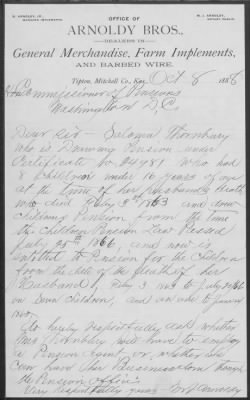 D. ARNOLDY, JR.,
M. J. ARNOLDY,
NOTARY PUBLIC.
OFFICE OF
ARNOLDY BROS.,
DEALERS IN
General Merchandise, Farm Implements,
AND BARBED WIRE.
Tipton, Mitchell Co., Kas., Oct 8 1888
Commissioner of Pensions
Washington D, C,
Dear Sir - Saloma Thornbury
who is Drawing Pension under
Certificate No 24981 who had
8 Children under 16 years of age
at the time of her husband's death
who died 3rd 1863 and drew
Pension from the time
the Children's Pension Law Passed
July 25th 1866, and now is
entitled to Pension for the Children
from the date of the death of her
Husband 3 1863 to July 25 1866
on Seven Children, and
do hereby respectfully ask whether
Mrs Thornbury will have to employ
a Pension or whether she
can have this through
the Pension office
Very Respectfully yours M J Arnoldy